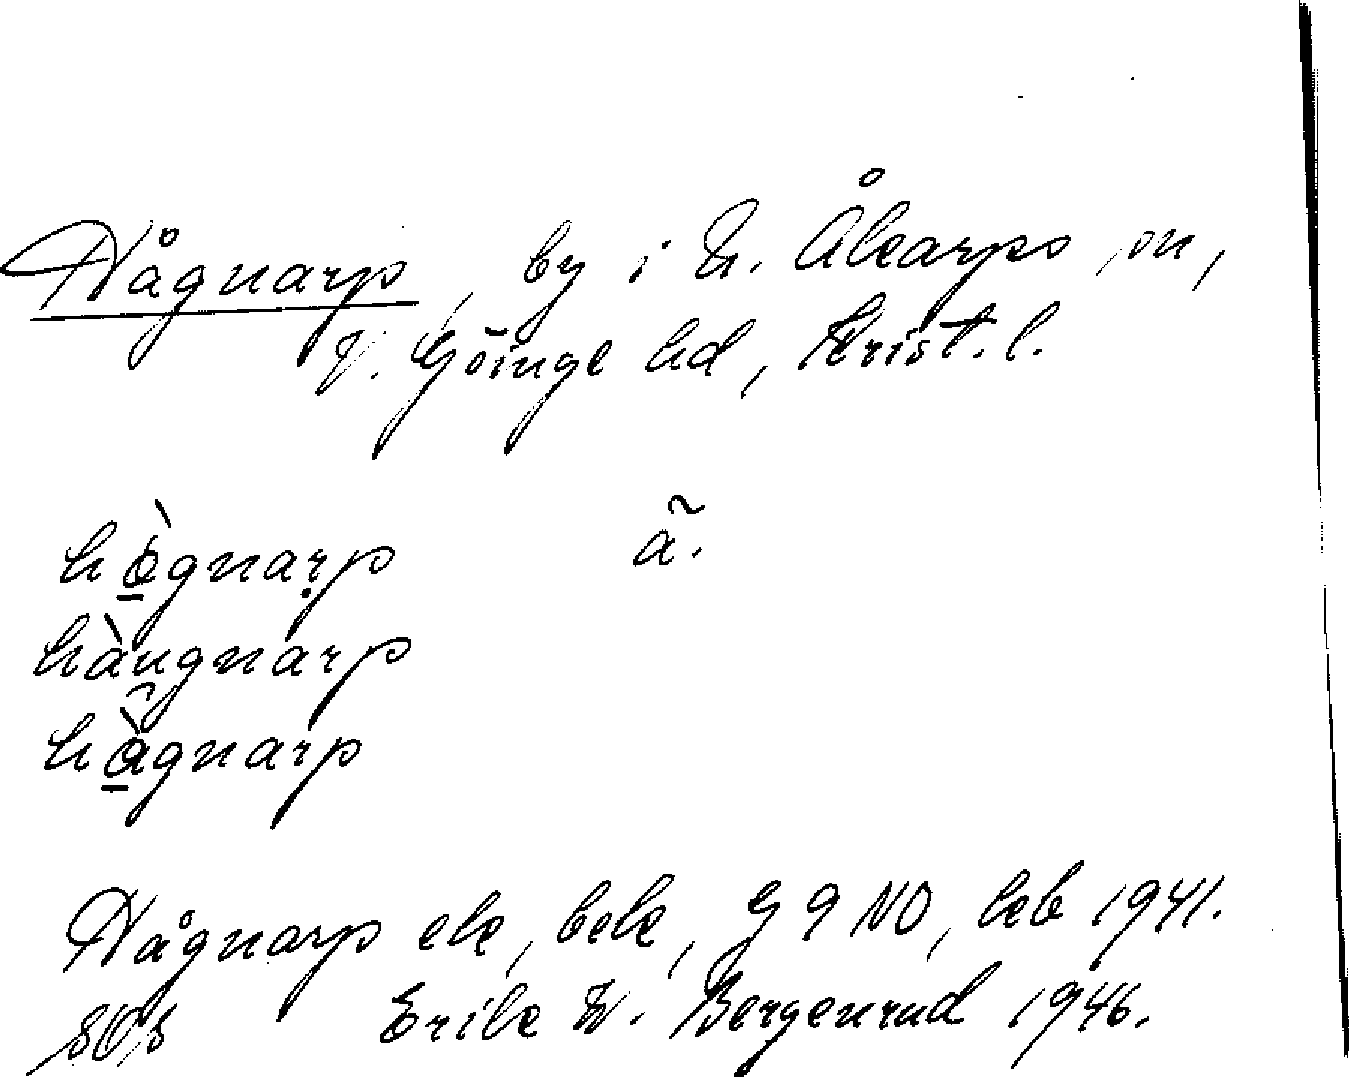 Hågnarp, by i N. Åkarps sn,
V. Göinge hd, Krist. l.
hògnarp ã.
hàugnarp
hågnarp
Hågnarp ek, bek, G 9 NO, kb 1941.
Erik W. Bergenrud 1946.